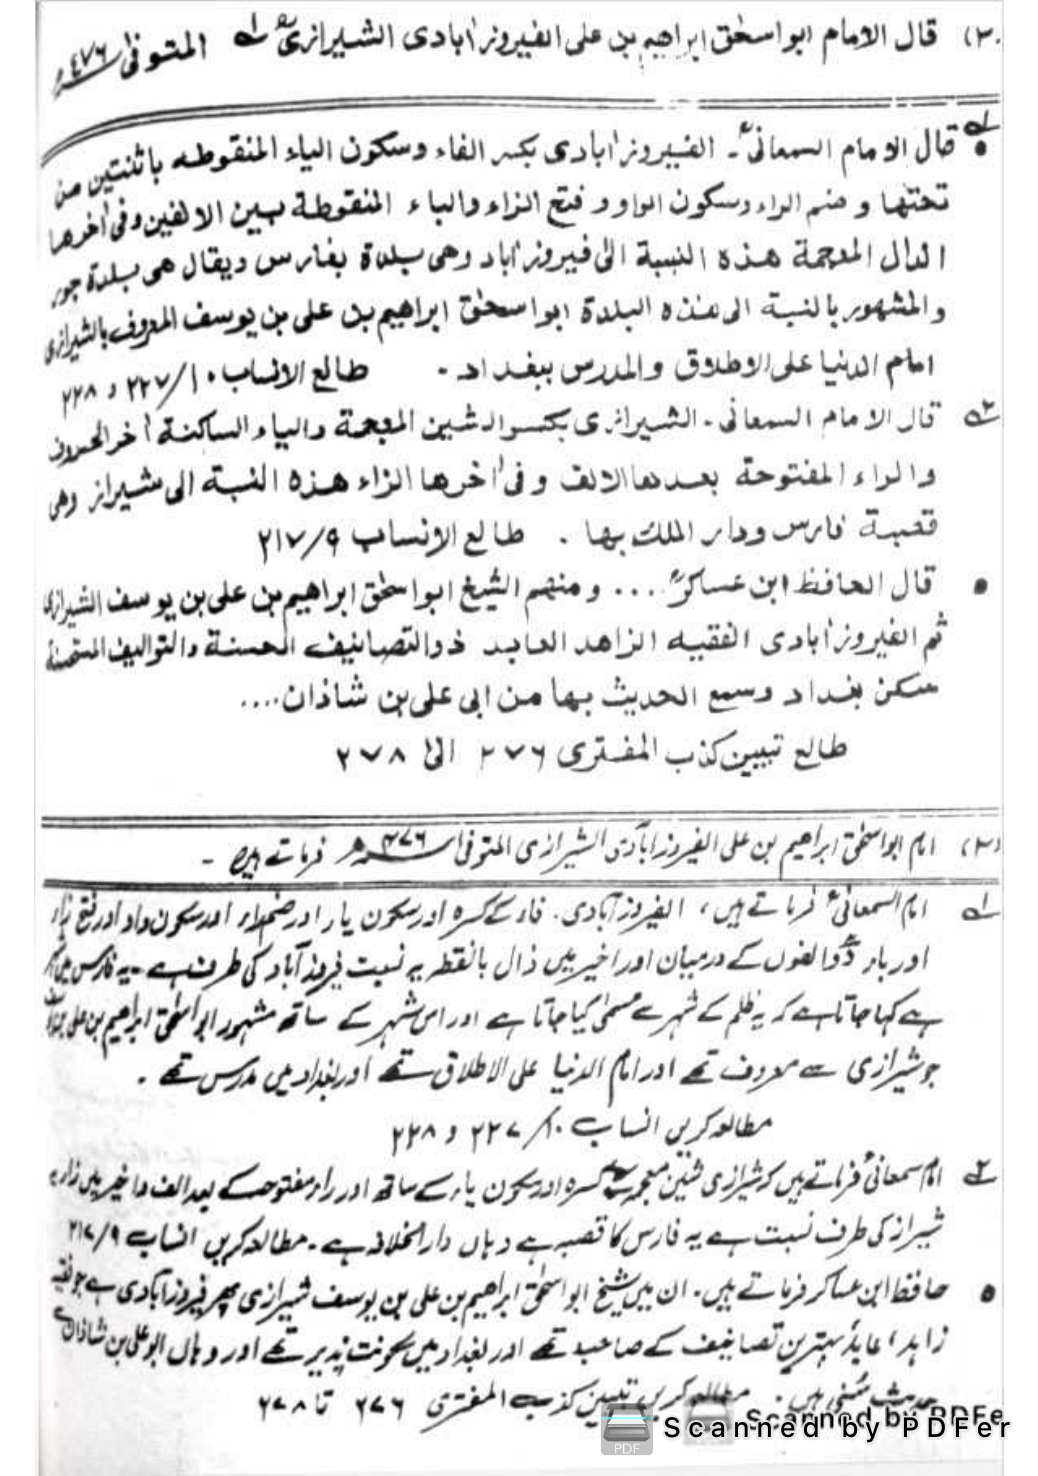 (۳) قال الامام ابو اسحٰق ابراهيم بن علی الفیروزاٰبادی الشیرازیؒ لہ المتوفیٰ ٤٧٦ھ
لہ قال الامام السمعانیؒ۔ الفیروزاٰبادی بکسر الفاء وسکون الیاء المنقوطہ باثنتین من
تحتھا وضم الراء وسکون الواو و فتح الزاء والباء المنقوطة بین الالفین وفی اٰخرھا
الدال المعجمة ھذہ النسبة الیٰ فیروزاٰباد وھی بلدة بفارس ویقال ھی بلدة جور
والمشھور بالنسبة الی ھذہ البلدة ابو اسحٰق ابراھیم بن علی بن یوسف المعروف بالشیرازی
امام الدنیا علی الاطلاق والمدرس ببغداد۔ طالع الانساب ۱۰/ ۲۲۷ و ۲۲۸
۲ہ قال الامام السمعانی۔ الشیرازی بکسر الشین المعجمة والیاء الساکنة اٰخر الحروف
والراء المفتوحة بعدھا الالف وفی اٰخرھا الزاء ھذہ النسبة الی شیراز وھی
قصبة فارس ودار الملک بھا ۔ طالع الانساب ۹/ ۲۱۷
• قال الحافظ ابن عساکرؒ.... ومنھم الشیخ ابو اسحٰق ابراھیم بن علی بن یوسف الشیرازی
ثم الفیروزاٰبادی الفقیہ الزاھد العابد ذوالتصانیف الحسنة والتوالیف المستحسنة
سکن بغداد وسمع الحدیث بھا من ابی علی بن شاذان....
طالع تبیین کذب المفتری ۲۷۶ الیٰ ۲۷۸
(۳) امام ابو اسحٰق ابراہیم بن علی الفیروزاٰبادی الشیرازی المتوفیٰ ۴۷۶ھ فرماتے ہیں ۔
لہ امام السمعانیؒ فرماتے ہیں، الفیروزآبادی۔ فاء کے کسرہ اور سکون یاء اور ضمہ راء اور سکون واو اور فتح زاء
اور باء دو الفوں کے درمیان اور اخیر میں ذال بالنقطہ یہ نسبت فیروزآباد کی طرف ہے۔ یہ فارس میں
ہے کہا جاتا ہے کہ یہ ظلم کے شہر سے مسمیٰ کیا جاتا ہے اور اس شہر کے ساتھ مشہور ابو اسحٰق ابراہیم بن علی بن یوسف
جو شیرازی سے معروف تھے اور امام الدنیا علی الاطلاق تھے اور بغداد میں مدرس تھے ۔
مطالعہ کریں انساب ۱۰/ ۲۲۷ و ۲۲۸
۲ہ امام سمعانیؒ فرماتے ہیں کہ شیرازی شین معجمہ کے کسرہ اور سکون یاء کے ساتھ اور راء مفتوحہ کے بعد الف و اخیر میں زاء یہ
شیراز کی طرف نسبت ہے یہ فارس کا قصبہ ہے وہاں دارالخلافہ ہے۔ مطالعہ کریں انساب ۹/ ۲۱۷
• حافظ ابن عساکر فرماتے ہیں۔ ان میں شیخ ابو اسحٰق ابراہیم بن علی بن یوسف شیرازی پھر فیروزآبادی ہے جو فقیہ
زاہد، عابد، بہترین تصانیف کے صاحب تھے اور بغداد میں سکونت پذیر تھے اور وہاں ابو علی بن شاذان سے
حدیث سنی ہیں ۔ مطالعہ کریں تبیین کذب المفتری ۲۷۶ تا ۲۷۸
Scanned by PDFer
Scanned by PDFer
PDF